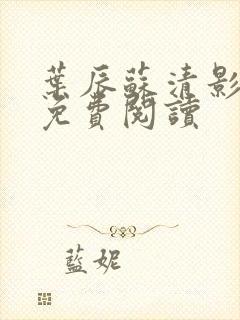 葉辰蘇清影
免費閱讀
藍妮